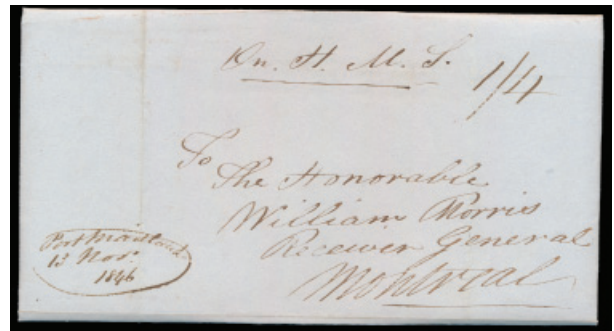 On. H. M. S.
1/4
To
The Honorable
William Morris
Receiver General
Montreal
Port Maitland
13 Nov.
1846